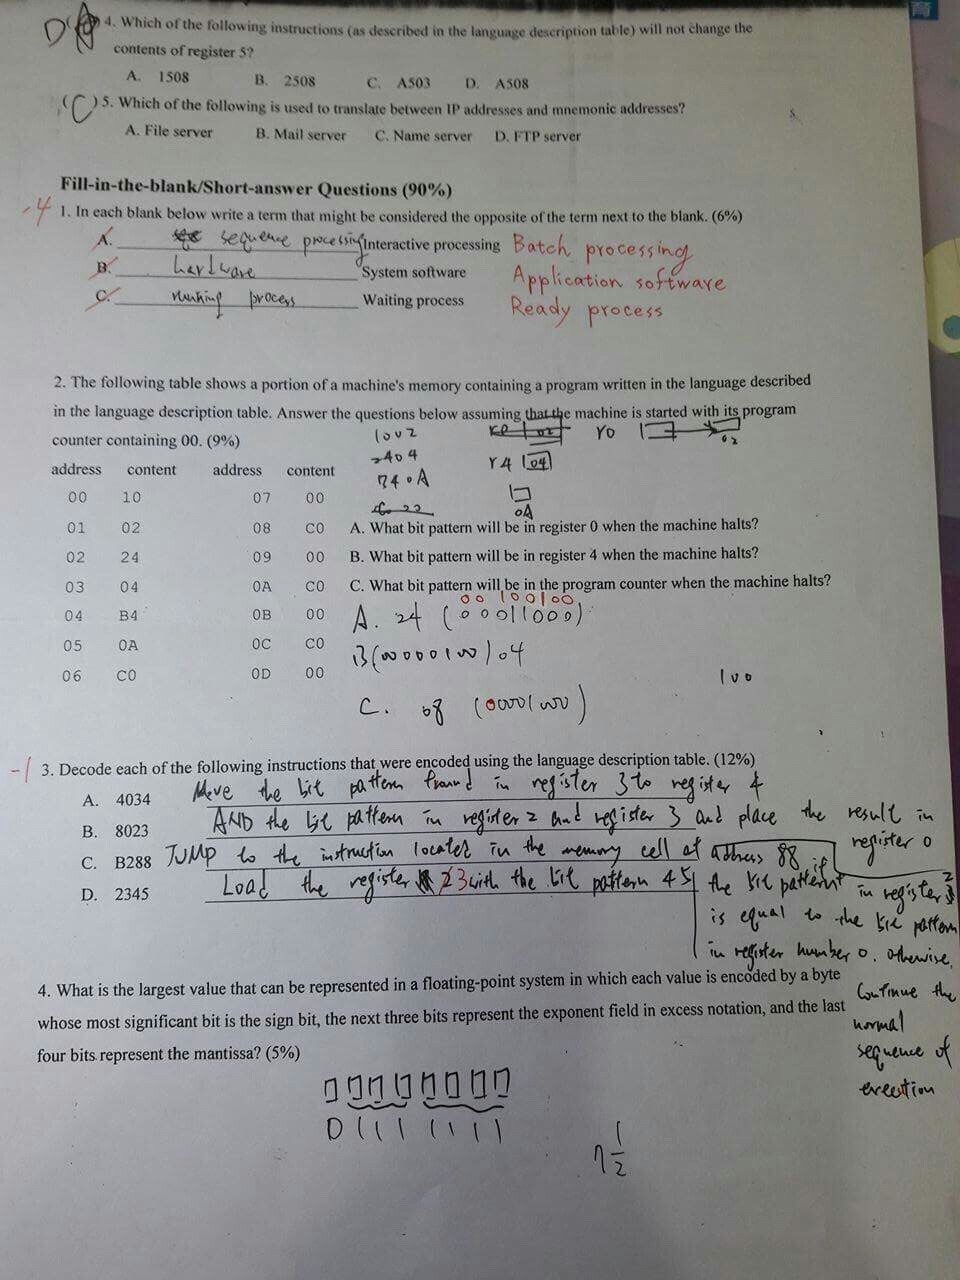 D ( ) 4. Which of the following instructions (as described in the language description table) will not change the
contents of register 5?
A. 1508 B. 2508 C. A503 D. A508
(C) 5. Which of the following is used to translate between IP addresses and mnemonic addresses?
A. File server B. Mail server C. Name server D. FTP server
Fill-in-the-blank/Short-answer Questions (90%)
-4 1. In each blank below write a term that might be considered the opposite of the term next to the blank. (6%)
A. sequence processing Interactive processing Batch processing
B. hardware System software Application software
C. running process Waiting process Ready process
2. The following table shows a portion of a machine's memory containing a program written in the language described
in the language description table. Answer the questions below assuming that the machine is started with its program
counter containing 00. (9%)
1002 02 r0 02
2404 r4 04
740A
0A
address content address content
00 10 07 00
01 02 08 C0 A. What bit pattern will be in register 0 when the machine halts?
02 24 09 00 B. What bit pattern will be in register 4 when the machine halts?
03 04 0A C0 C. What bit pattern will be in the program counter when the machine halts?
00100100
04 B4 0B 00 A. 24 (00011000)
05 0A 0C C0 B (00000100) 04
06 C0 0D 00 100
C. 08 (00001000)
-1 3. Decode each of the following instructions that were encoded using the language description table. (12%)
A. 4034 Move the bit pattern found in register 3 to register 4
B. 8023 AND the bit pattern in register 2 and register 3 and place the result in register 0
C. B288 JUMP to the instruction located in the memory cell at address 88 if the bit pattern in register 2
is equal to the bit pattern
in register number 0. otherwise,
Continue the
normal
sequence of
execution
D. 2345 Load the register 3 with the bit pattern 45
4. What is the largest value that can be represented in a floating-point system in which each value is encoded by a byte
whose most significant bit is the sign bit, the next three bits represent the exponent field in excess notation, and the last
four bits represent the mantissa? (5%)
0 111 1111
7 1/2